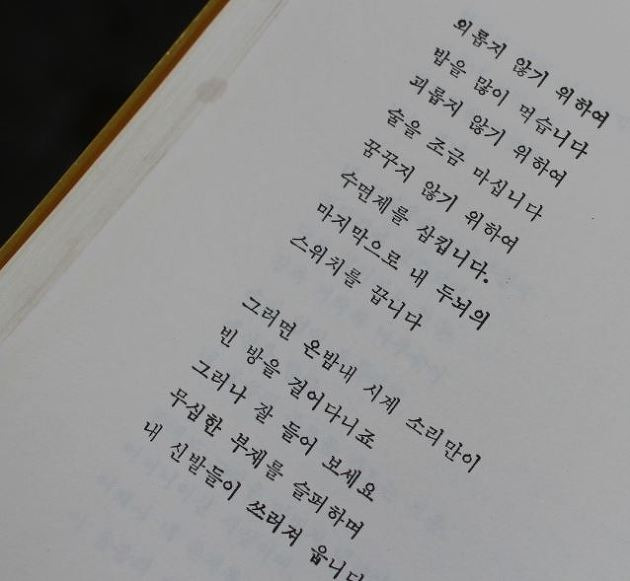 외롭지 않기 위하여
밥을 많이 먹습니다
괴롭지 않기 위하여
술을 조금 마십니다
꿈꾸지 않기 위하여
수면제를 삼킵니다.
마지막으로 내 두뇌의
스위치를 끕니다
그러면 온밤내 시계 소리만이
빈 방을 걸어다니죠
그러나 잘 들어 보세요
무심한 부재를 슬퍼하며
내 신발들이 쓰러져 웁니다